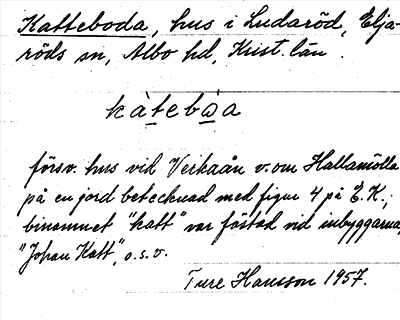 Katteboda, hus i Ludaröd, Elja-
röds sn, Albo hd, Krist. län.
kàtebòa
försv. hus vid Verkaån v. om Hallamölla
på en jord betecknad med figur 4 på E.K.;
binamnet "katt" var fästad vid inbyggarna,
"Johan Katt", o.s.v.
Ture Hansson 1957.